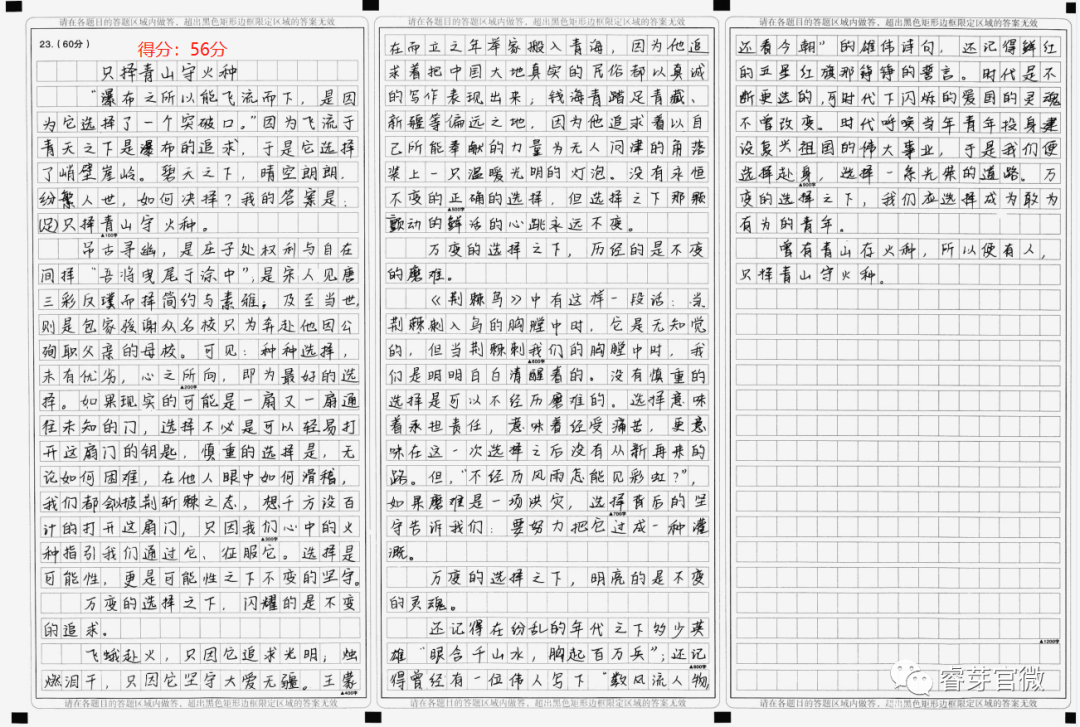 请在各题目的答题区域内做答，超出黑色矩形边框限定区域的答案无效
23.（60分）
得分：56分
只择青山守火种
“瀑布之所以能飞流而下，是因
为它选择了一个突破口。”因为飞流于
青天之下是瀑布的追求，于是它选择
了峭壁崖岭。碧天之下，晴空朗朗，
纷繁人世，如何决择？我的答案是：
只择青山守火种。
▲100字
吊古寻幽，是庄子处权利与自在
间择“吾将曳尾于涂中”，是宋人见唐
三彩反璞而择简约与素雅。及至当世，
则是包家骏谢众名校只为奔赴他因公
殉职父亲的母校。可见：种种选择，
未有优劣，心之所向，即为最好的选
▲200字
择。如果现实的可能是一扇又一扇通
往未知的门，选择不必是可以轻易打
开这扇门的钥匙，慎重的选择是，无
论如何困难，在他人眼中如何滑稽，
我们都会披荆斩棘之态，想千方设百
计的打开这扇门，只因我们心中的火
▲300字
种指引我们通过它、征服它。选择是
可能性，更是可能性之下不变的坚守。
万变的选择之下，闪耀的是不变
的追求。
飞蛾赴火，只因它追求光明；烛
燃泪干，只因它坚守大爱无疆。王蒙
▲400字
请在各题目的答题区域内做答，超出黑色矩形边框限定区域的答案无效
请在各题目的答题区域内做答，超出黑色矩形边框限定区域的答案无效
在而立之年举家搬入青海，因为他追
求着把中国大地真实的民俗都以真诚
的写作表现出来，钱海青踏足青藏、
新疆等偏远之地，因为他追求着以自
己所能奉献的力量为无人问津的角落
装上一只温暖光明的灯泡。没有永恒
不变的正确的选择，但选择之下那颗
▲500字
颤动的鲜活的心跳永远不变。
万变的选择之下，历经的是不变
的磨难。
《荆棘鸟》中有这样一段话：当
荆棘刺入鸟的胸膛中时，它是无知觉
的，但当荆棘刺我们的胸膛中时，我
▲600字
们是明明白白清醒着的。没有慎重的
选择是可以不经历磨难的。选择意味
着承担责任，意味着经受痛苦，更意
味在这一次选择之后没有从新再来的
路。但，“不经历风雨怎能见彩虹？”，
如果磨难是一场洪灾，选择背后的坚
▲700字
守告诉我们：要努力把它过成一种灌
溉。
万变的选择之下，明亮的是不变
的灵魂。
还记得在纷乱的年代之下多少英
雄“眼含千山水，胸起百万兵”；还记
▲800字
得曾经有一位伟人写下“数风流人物，
请在各题目的答题区域内做答，超出黑色矩形边框限定区域的答案无效
请在各题目的答题区域内做答，超出黑色矩形边框限定区域的答案无效
还看今朝”的雄伟诗句，还记得鲜红
的五星红旗那铮铮的誓言。时代是不
断更迭的，可时代下闪烁的爱国的灵魂
不曾改变。时代呼唤当年青年投身建
设复兴祖国的伟大事业，于是我们便
选择赴身，选择一条光荣的道路。万
▲900字
变的选择之下，我们应选择成为敢为
有为的青年。
曾有青山存火种，所以便有人，
只择青山守火种。
▲1200字
请在各题目的答题区域内做答，超出黑色矩形边框限定区域的答案无效
睿芽官微